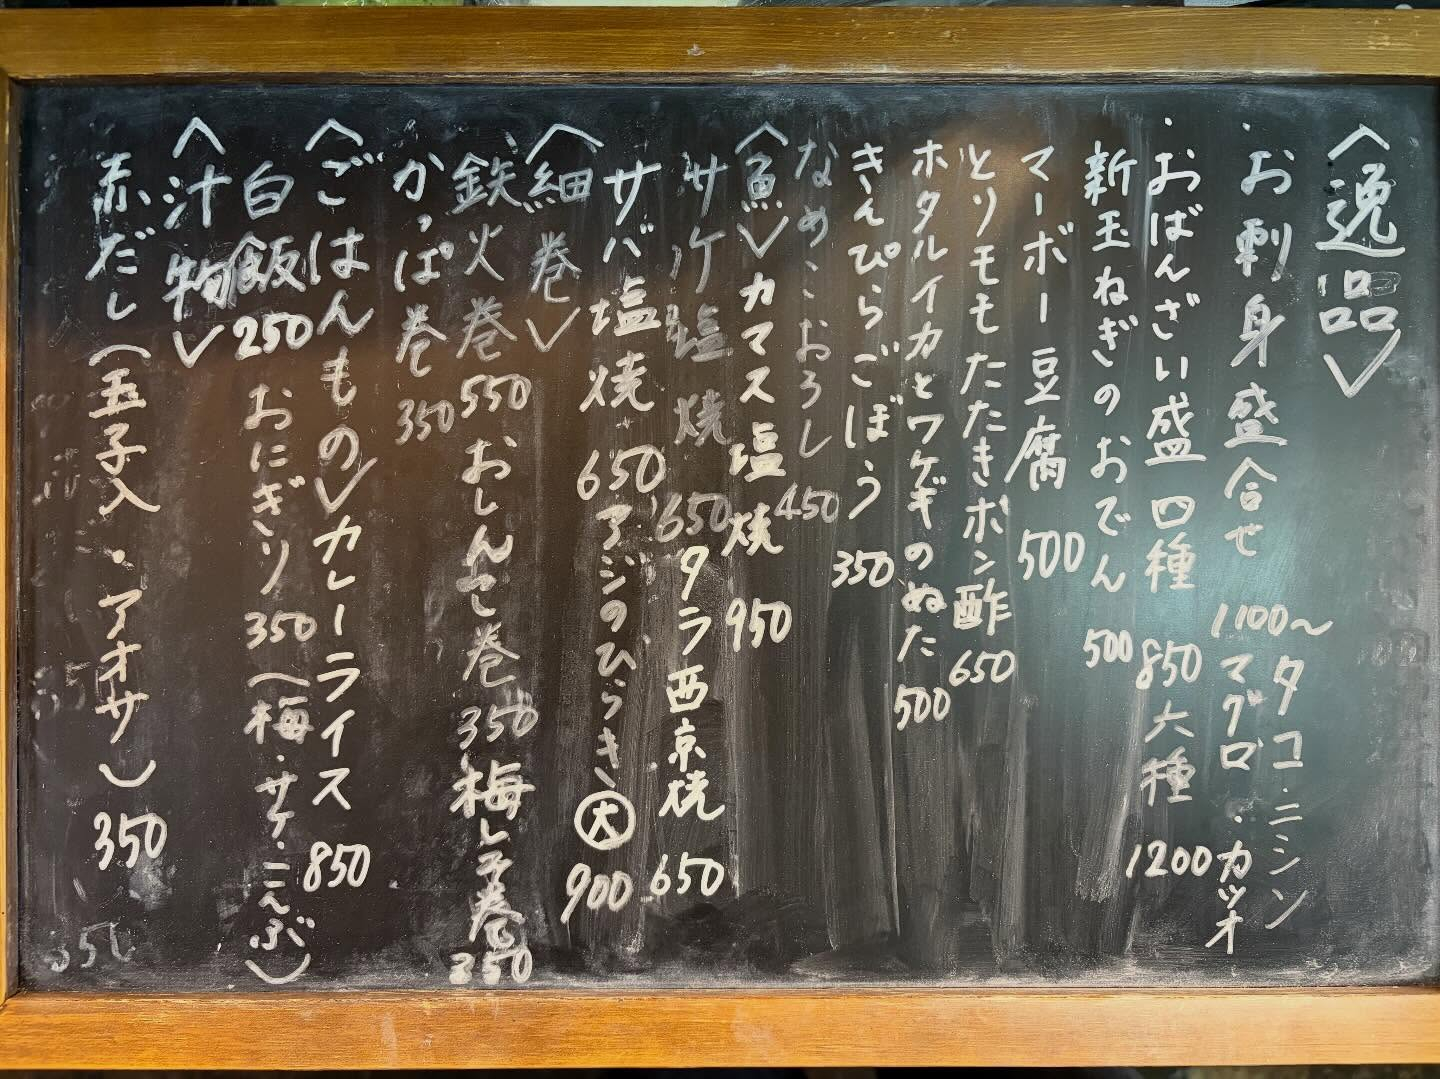 〈逸品〉
・お刺身盛合せ 1100〜 タコ・ニシン
マグロ・カツオ
・おばんざい盛 四種 850 六種 1200
新玉ねぎのおでん 500
マーボー豆腐 500
とりモモたたきポン酢 650
ホタルイカとワケギのぬた 500
きんぴらごぼう 350
なめこおろし 450
〈魚〉カマス塩焼 950
サケ塩焼 650 タラ西京焼 650
サバ塩焼 650 アジのひらき 大 900
〈細巻〉
鉄火巻 550 おしんこ巻 350 梅シソ巻 350
かっぱ巻 350
〈ごはんもの〉カレーライス 850
白飯 250 おにぎり 350(梅・サケ・こんぶ)
〈汁物〉
赤だし(玉子入・アオサ) 350